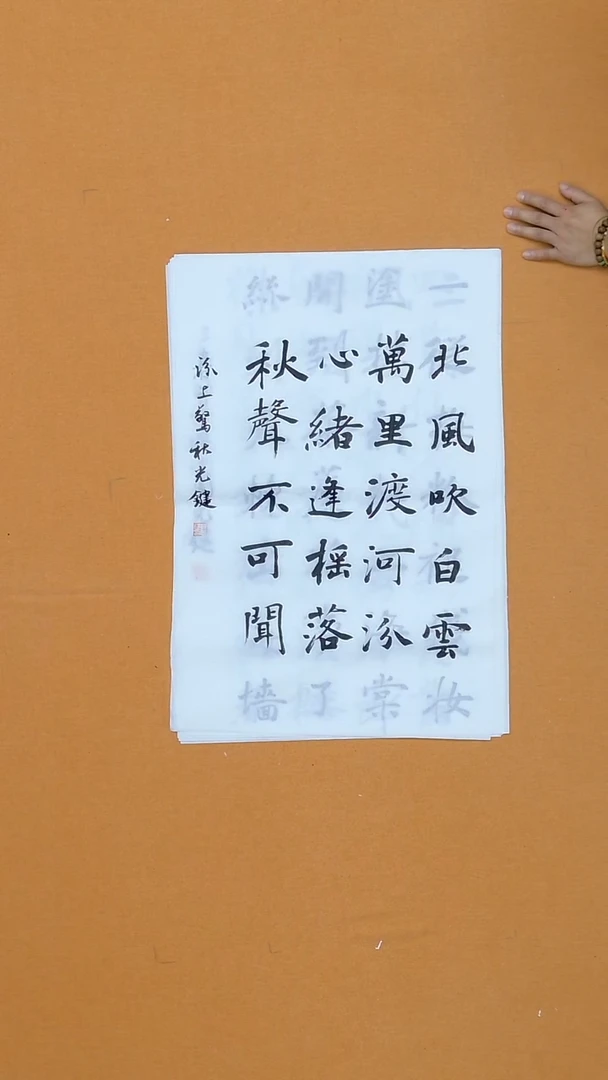 北風吹白雲
萬里渡河汾
心緒逢摇落
秋聲不可聞
汾上驚秋光鍵